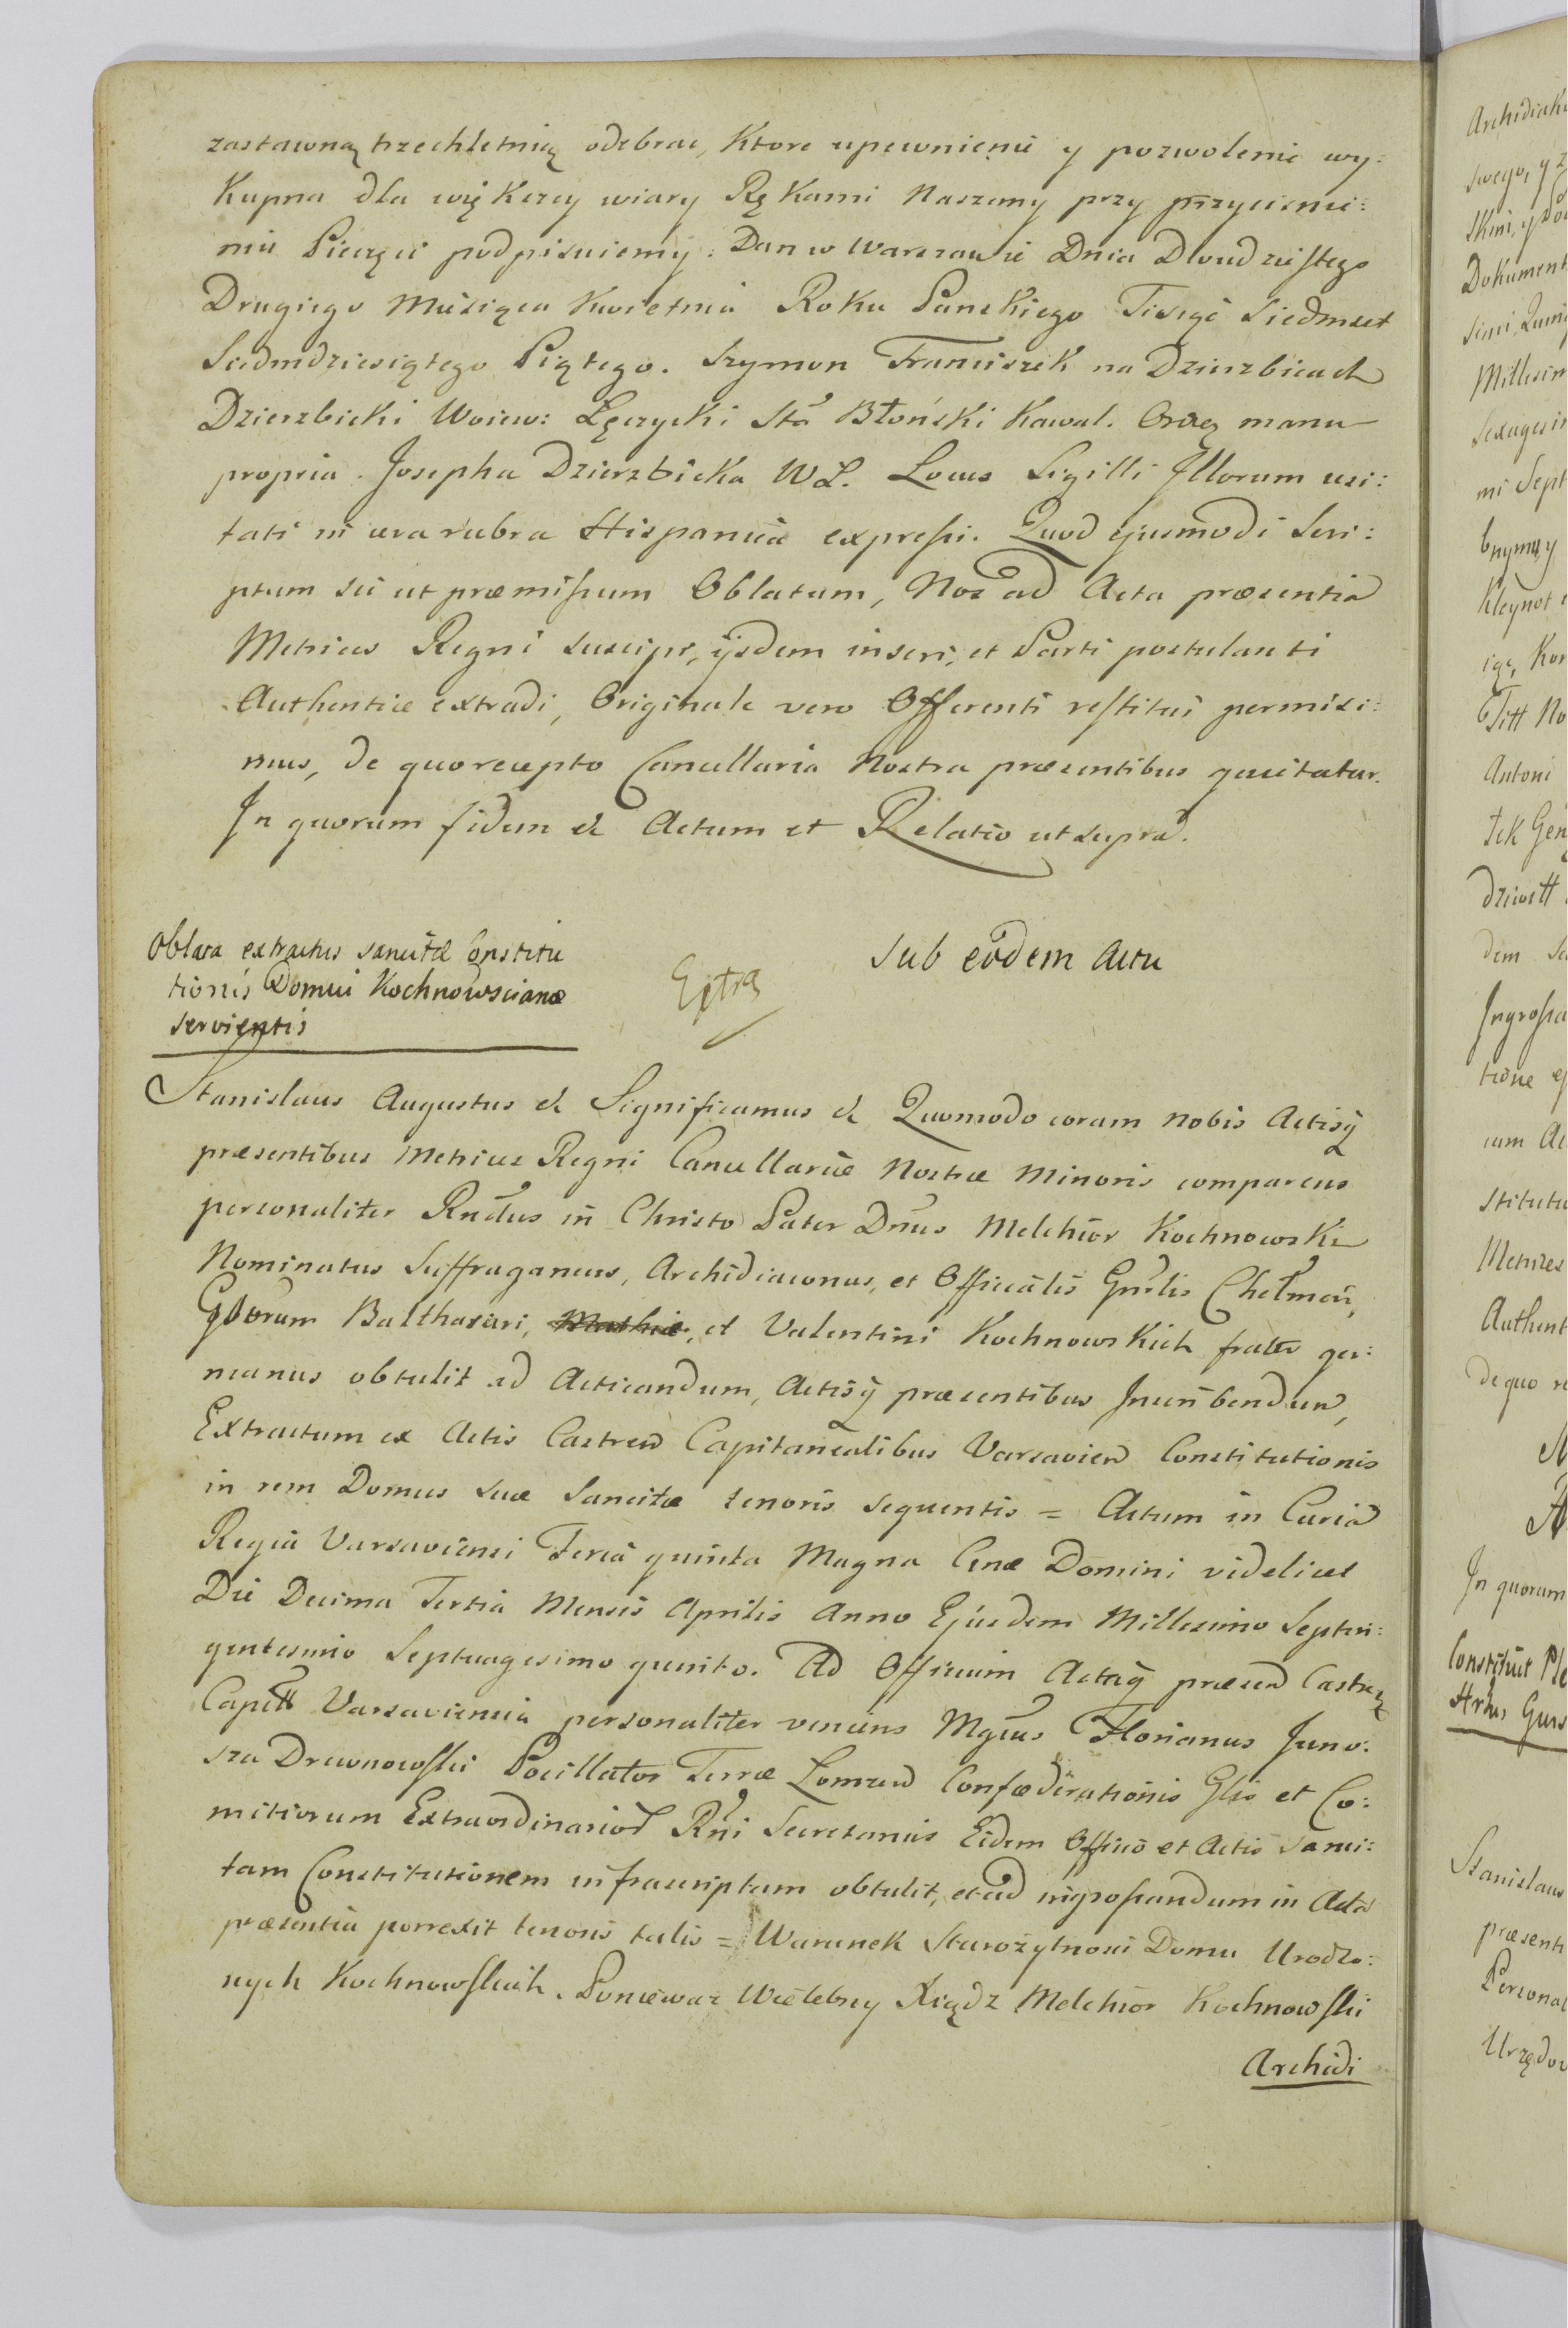 zastawną trzechletnią odebrac, Ktore upewnienie y pozwolenie wy:
Kupna dla większey wiary Rękami Naszemy przy przycisnie:
niu Pieczęci podpisuiemy. Dan w Warszawie Dnia Dwudziestego
Drugiego Miesiąca Kwietnia Roku Panskiego Tisiąć Siedmset
Siedmdziesiątego Piątego. Szymon Franciszek na Dzierzbicach
Dzierzbicki Woiew: Łęczycki Sta Błoński Kawal. Orde̜ manu
propria. Josepha Dzierzbicka W Ł. Locus Sigilli Illorum usi:
tati in cera rubra Hispanica expressi. Quod ejusmodi Scri:
ptum sic ut præmissum Oblatum, Nos ad Acta præsentia
Metrices Regni suscipi, ijsdem inseri, et Parti postulanti
Authentice extradi, Originale vero Offerenti restitui permisi:
mus, de quo recepto Cancellaria Nostra præsentibus quietatur.
In quorum fidem & Actum et Relatio ut supra.
Oblata extractus sancitæ Constitu
tionis Domui Kochnowscianæ
servientis
Extra
Sub eodem Actu
Stanislaus Augustus & Significamus & Quomodo coram nobis Actisq̃
præsentibus Metrices Regni Cancellariæ Nostræ Minoris comparens
personaliter Rndus in Christo Pater Dnus Melchior Kochnowski
Nominatus Suffraganeus, Archidiaconus, et Officialis Gnrlis Chelmen,
Gdorum Balthasari, Mathiæ, et Valentini Kochnowskich frater ger:
manus obtulit ad Acticandum, Actisq̃ præsentibus Inscribendum,
Extractum ex Actis Castren Capitanealibus Varsavien Constitutionis
in rem Domus suæ Sancitæ tenoris sequentis = Actum in Curia
Regia Varsaviensi Feria quinta Magna Cenæ Domini videlicet
Die Decima Tertia Mensis Aprilis Anno Ejusdem Millesimo Septin:
gentesimo Septuagesimo quinto. Ad Officium Actaq̃ præsen Castren
Capitt Varsaviensia personaliter veniens Mgcus Florianus Juno:
sza Drewnowski Pocillator Terræ Lomzen Confæderationis Glis et Co:
mitiorum Extraordinarior Rni Secretarius Eidem Officio et Actis sanci:
tam Constitutionem infrascriptam obtulit, et ad ingrossandum in Acta
præsentia porrexit tenoris talis = Warunek Starożytnosci Domu Urodzo:
nych Kochnowskich. Poniewaz Wielebny Xiądz Melchior Kochnowski
Archidi